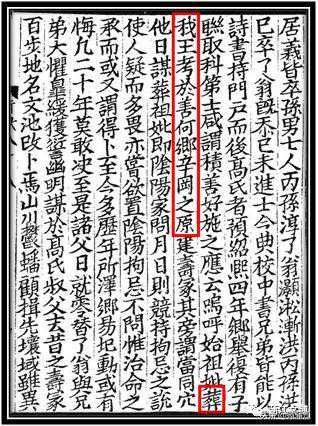 居義皆卒孫男七人丙孫淳了翁灝淞漸洪丙孫洪
已卒了翁旣忝己未進士今典校中書兄弟皆能以
詩書持門戸而後高氏者禎紹熙四年鄉舉後有子
聮取科第士咸謂積善好施之應云嗚呼始祖妣葬
我王考於善何鄉辛岡之原建壽冢其旁謂當同穴
他日謀葬祖妣即陰陽家問月日則競持拘忌之說
使人疑而多畏亦嘗欲置陰陽拘忌不問惟治命之
承而或又謂得卜至今多歷年所澤鄉易圯動或有
悔凡二十年莫敢決至是諸父日就零替了翁與兄
弟大懼皇緩獲誚幽明謀於高氏叔父去昔之壽冢
百步地名文池改卜焉山川鬱蟠顧揖先壤域雖異